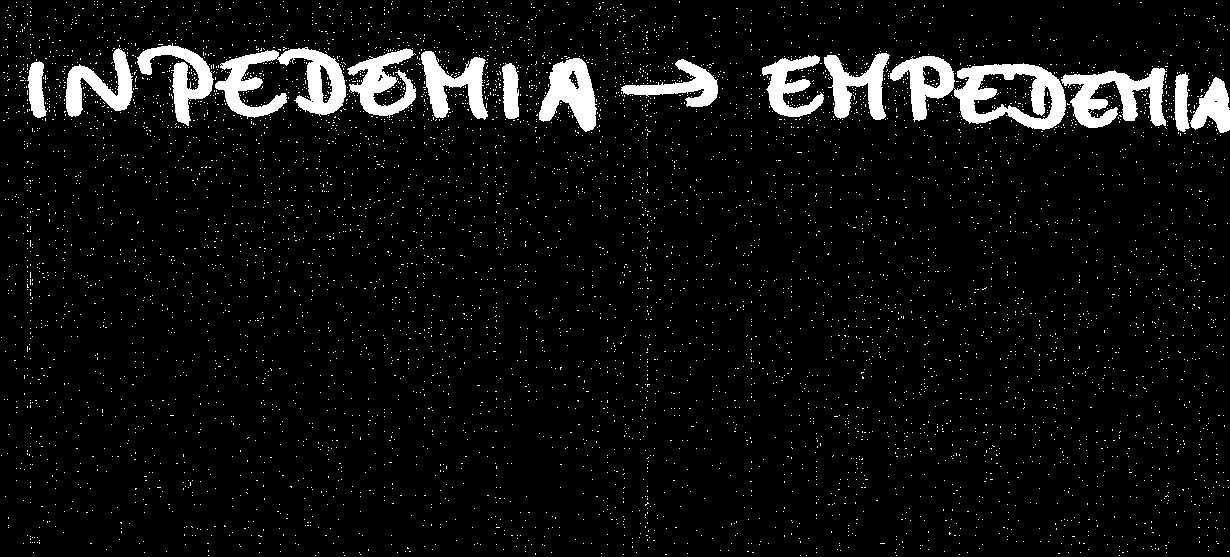 INPEDEMIA → EMPEDEMIA